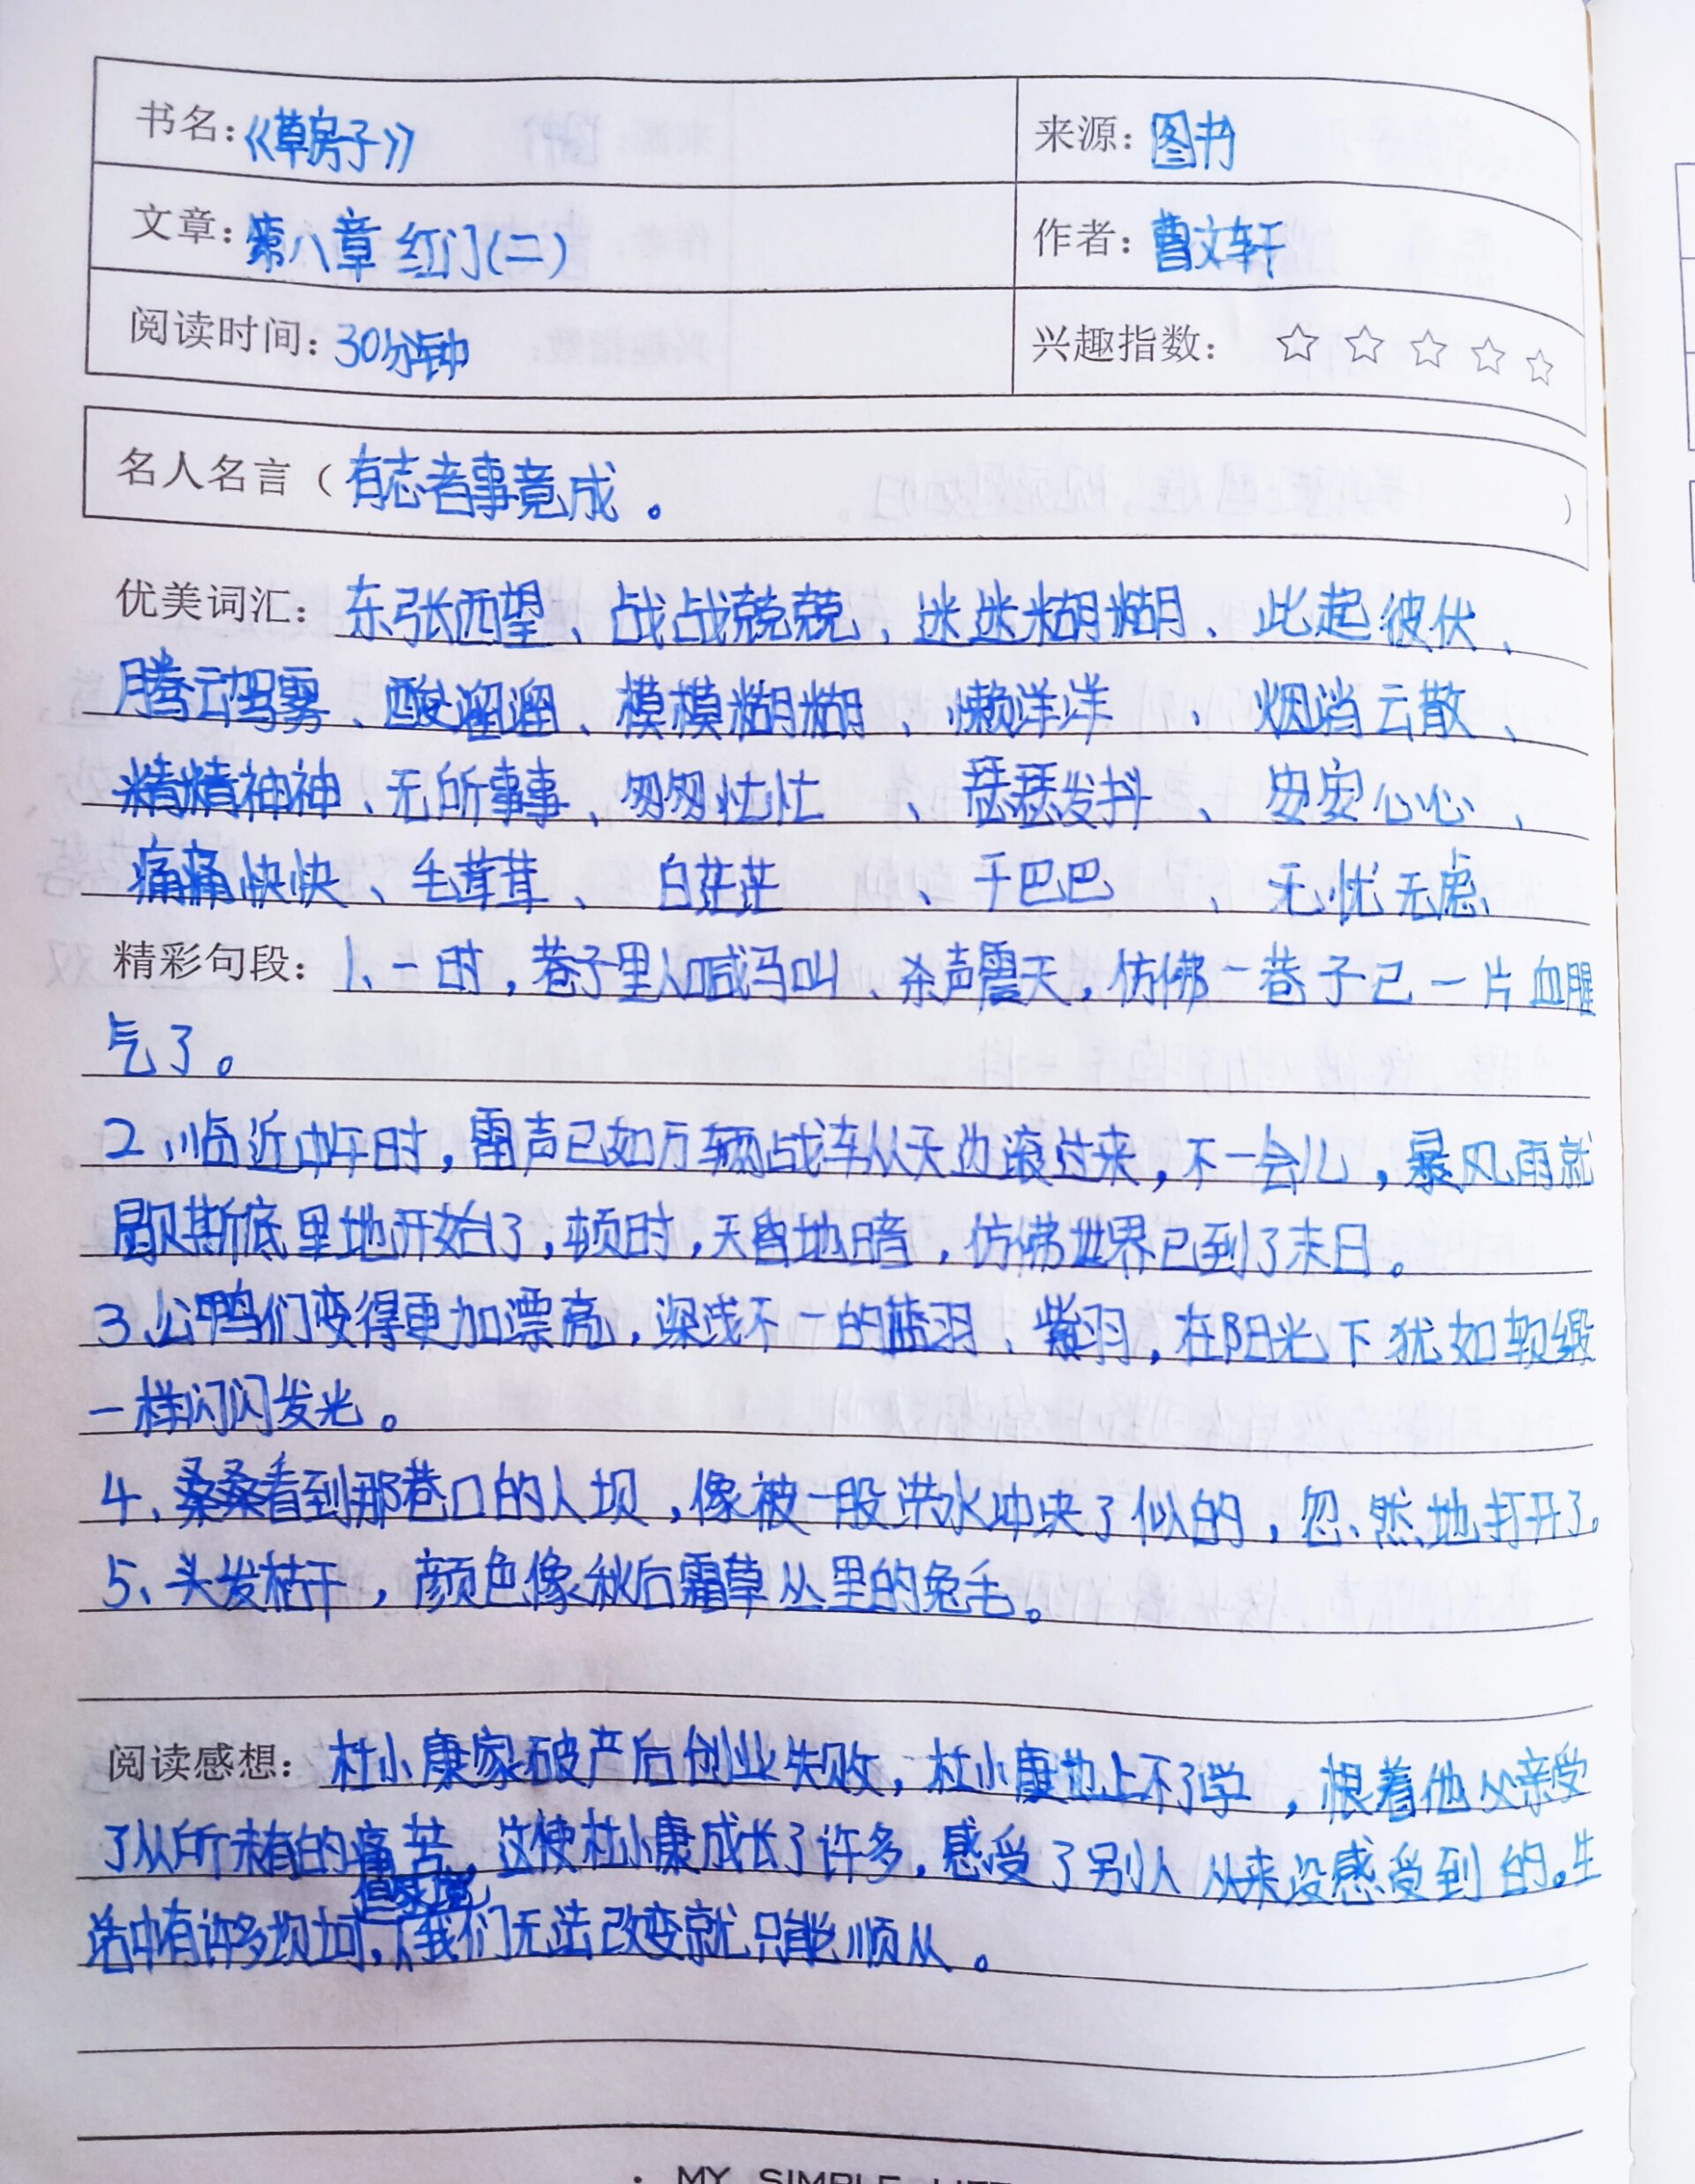 书名：《草房子》 来源：图书
文章：第八章 红门(二) 作者：曹文轩
阅读时间：30分钟 兴趣指数：☆ ☆ ☆ ☆ ☆
名人名言（有志者事竟成。）
优美词汇：东张西望、战战兢兢、迷迷糊糊、此起彼伏、
腾云驾雾、酸溜溜、模模糊糊、懒洋洋、烟消云散、
精精神神、无所事事、匆匆忙忙、瑟瑟发抖、安安心心、
痛痛快快、毛茸茸、白茫茫、干巴巴、无忧无虑
精彩句段：1、一时，巷子里人喊马叫、杀声震天，仿佛一巷子已一片血腥
气了。
2、临近中午时，雷声已如万辆战车从天边滚过来，不一会儿，暴风雨就
歇斯底里地开始了，顿时，天昏地暗，仿佛世界已到了末日。
3、公鸭们变得更加漂亮，深浅不一的蓝羽、紫羽，在阳光下犹如软缎
一样闪闪发光。
4、桑桑看到那巷口的人坝，像被一股洪水冲决了似的，忽然地打开了。
5、头发枯干，颜色像秋后霜草丛里的兔毛。
阅读感想：杜小康家破产后创业失败，杜小康也上不了学，根着他父亲受
了从所未有的痛苦，这使杜小康成长了许多，感受了别人从来没感受到的。生
活中有许多坝坷，我们无法改变就只能顺从。
MY SIMPLE